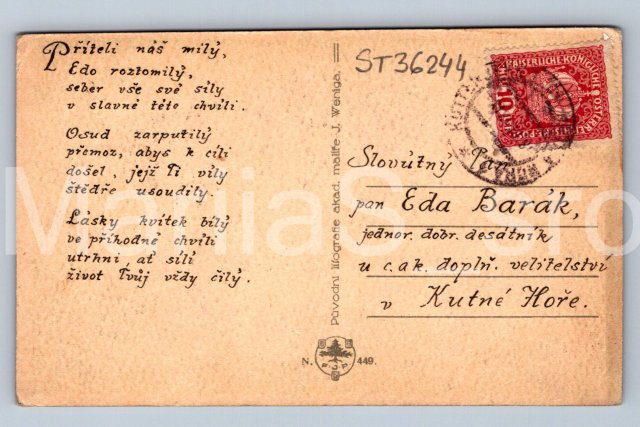 Příteli náš milý,
Edo roztomilý,
seber vše své síly
v slavné této chvíli.
Osud zarputilý
přemoz, abys k cíli
došel, jejž Ti víly
štědře usoudily.
Lásky kvítek bílý
ve příhodné chvíli
utrhni, ať sílí
život Tvůj vždy čilý.
Původní litografie akad. malíře J. Weniga.
N. 449.
ST36244
Slovútný Pan
pan Eda Barák,
jednor. dobr. desátník
u c. a k. doplň. velitelství
v Kutné Hoře.
KAISERLICHE KÖNIGLICHE ÖSTERR
10